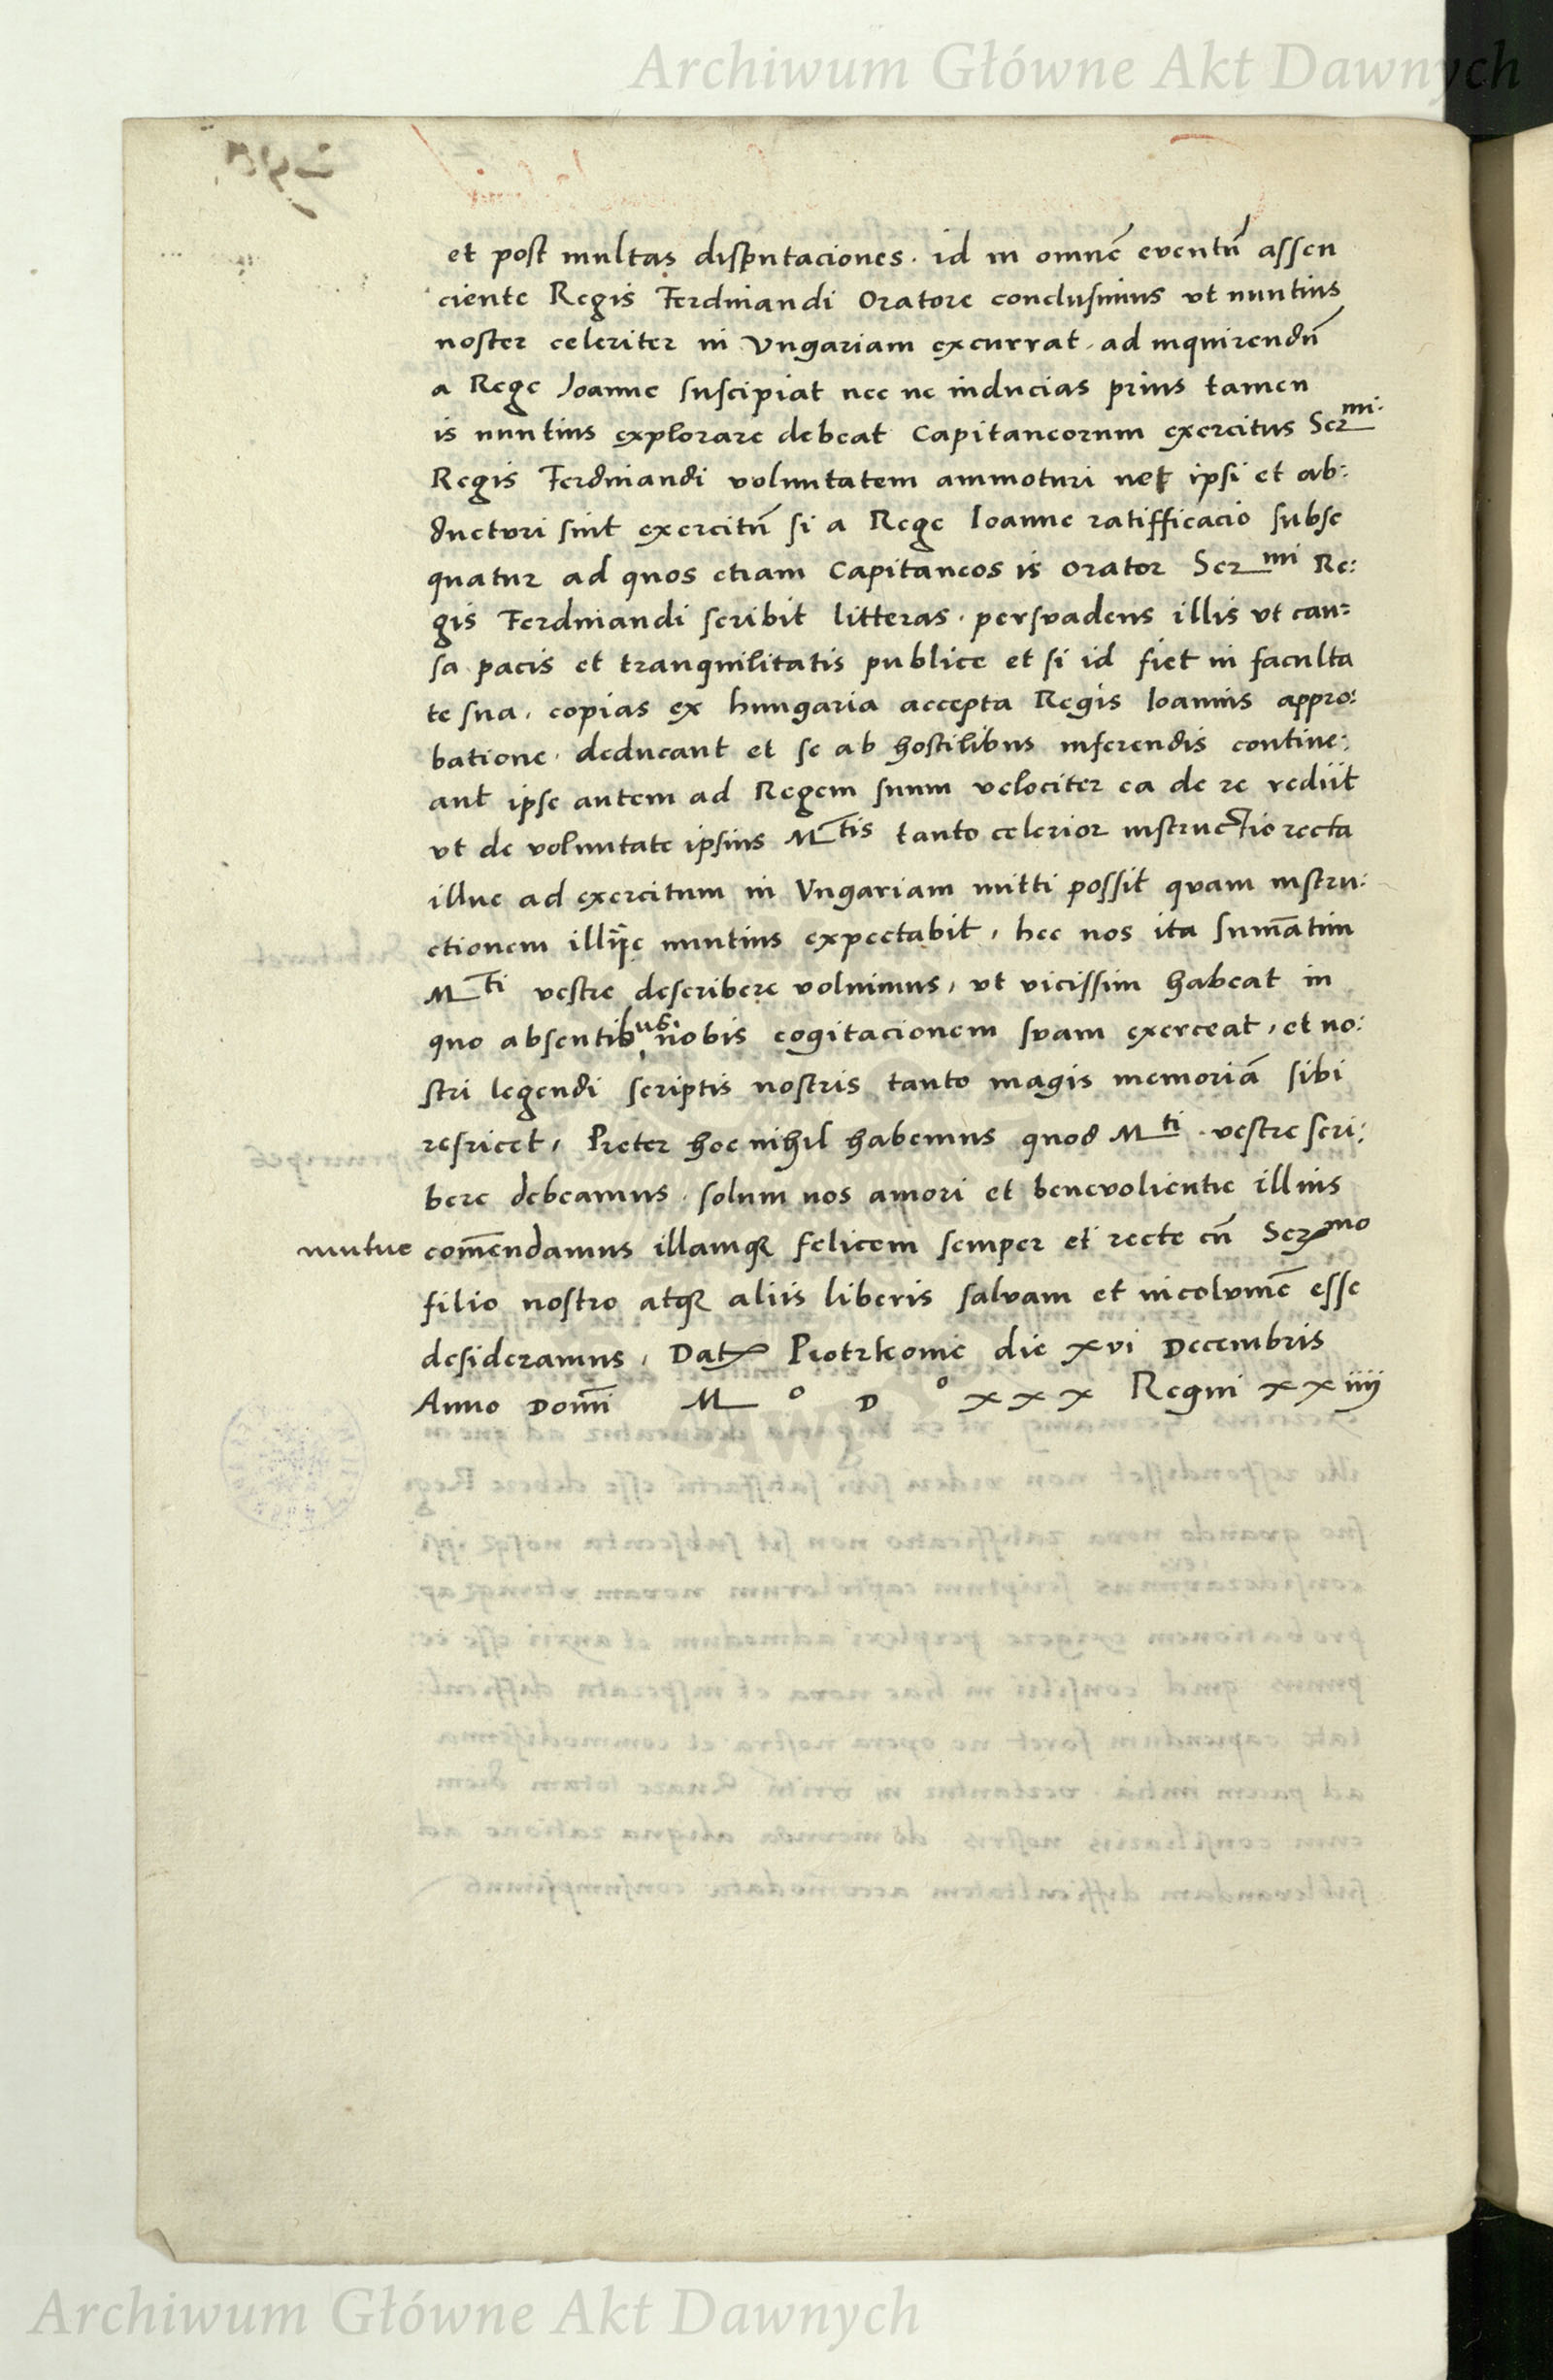 Archiwum Główne Akt Dawnych
et post multas disputaciones. id in omnē eventū assen
ciente Regis Ferdinandi Oratore conclusimus vt nuntius
noster celeriter in Vngariam excurrat, ad inquirendū
a Rege Ioanne suscipiat nec ne inducias prius tamen
is nuntius explorare debeat Capitaneorum exercitus Ser mi.
Regis Ferdinandi voluntatem ammoturi ne ipsi et ab:
ducturi sint exercitū si a Rege Ioanne ratifficacio subse
quatur ad quos etiam Capitaneos is orator Ser mi Re:
gis Ferdinandi scribit litteras. persvadens illis vt cau=
sa pacis et tranquilitatis publice et si id fiet in faculta
te sua, copias ex hungaria accepta Regis Ioannis appro:
batione. deducant et se ab hostilibus inferendis contine:
ant ipse autem ad Regem suum velociter ea de re rediit
vt de voluntate ipsius M tis tanto celerior instructio recta
illuc ad exercitum in Vngariam mitti possit quam instru:
ctionem illic nuntius expectabit, hec nos ita sum̄atim
M ti vestre describere voluimus, vt vicissim habeat in
quo absentibus nobis cogitacionem svam exerceat, et no:
stri legendi scriptis nostris tanto magis memoriā sibi
refricet, Preter hoc nihil habemus quod M ti. vestre scri:
bere debeamus. solum nos amori et benevolientie illius
mutue com̄endamus illamq; felicem semper et recte cū Ser mo
filio nostro atq; aliis liberis salvam et incolvmē esse
desideramus, Dat Piotrkovie die xvi Decembris
Anno Dom̄i M o D o x x x Regni x x iiij
Archiwum Główne Akt Dawnych